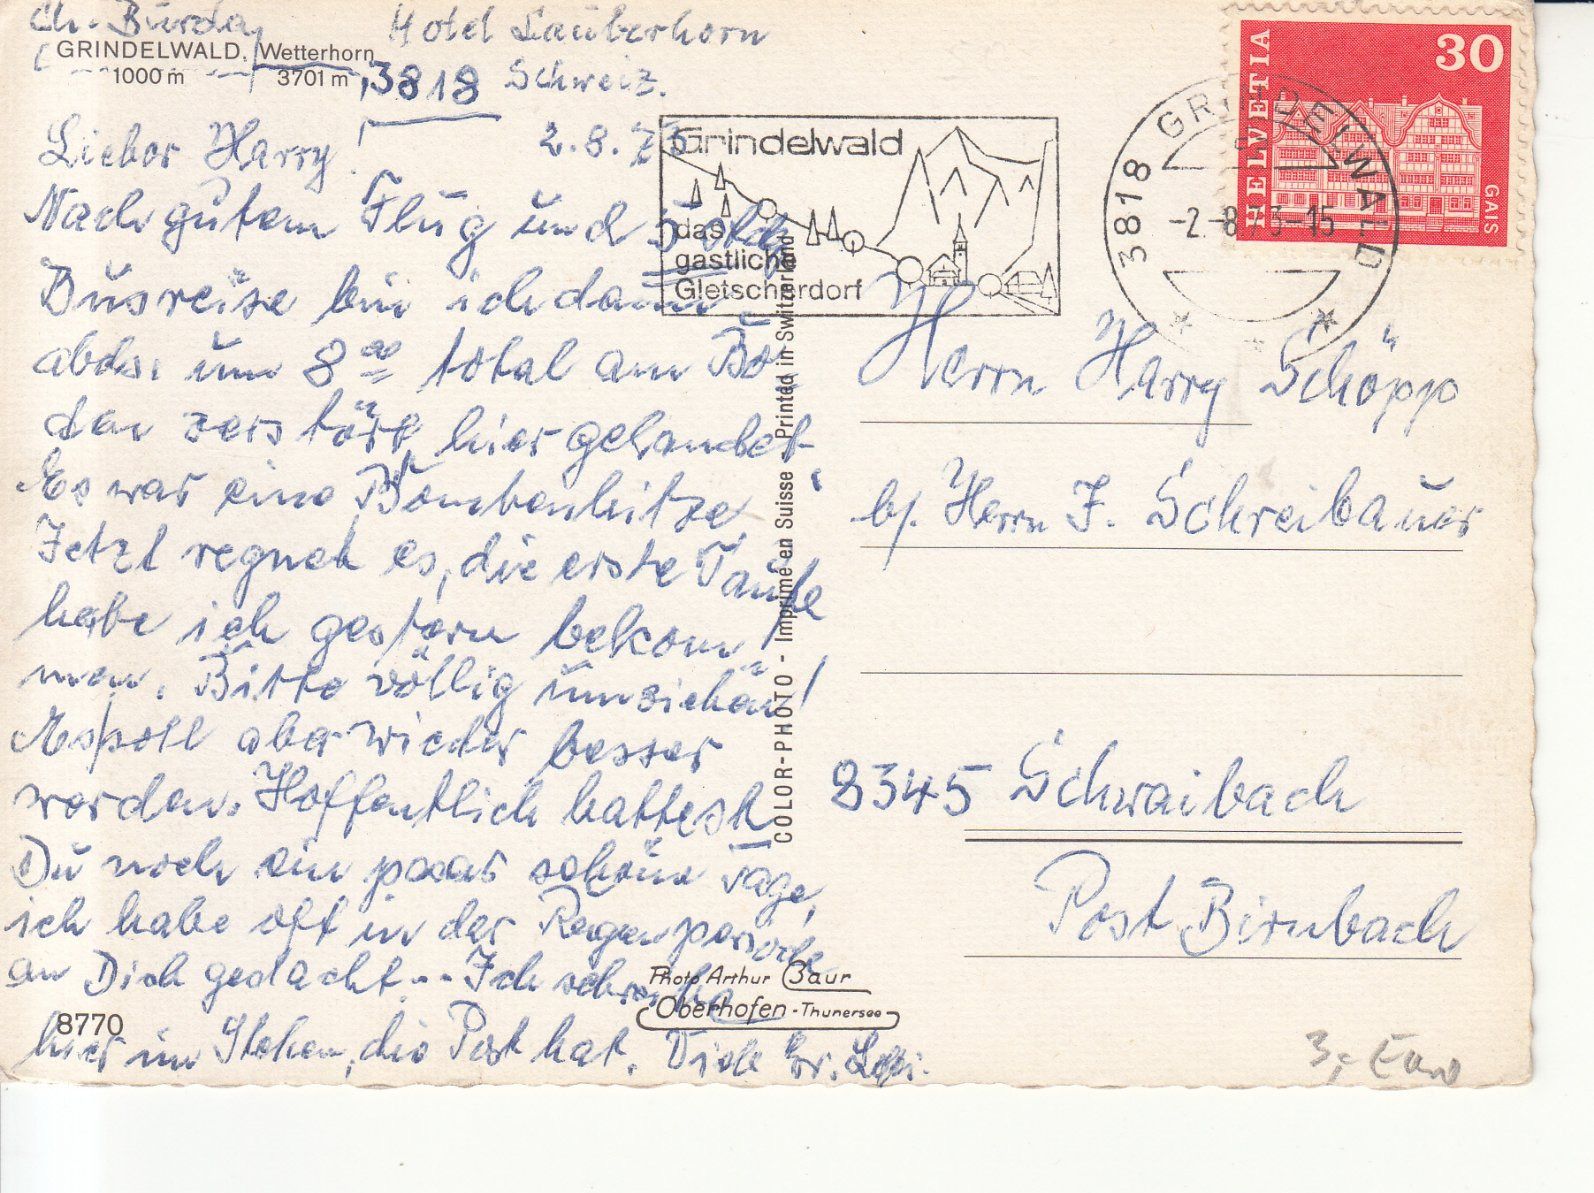 Ch. Burda, Hotel Lauberhorn
GRINDELWALD, Wetterhorn
1000 m 3701 m
3818 Schweiz.
2.8.73
Lieber Harry!
Nach gutem Flug und 5 stdg
Busreise bin ich dann
abds. um 8 00 total am Bo-
den zerstört hier gelandet.
Es war eine Bombenhitze.
Jetzt regnet es, die erste Taufe
habe ich gestern bekom-
men. Bitte völlig umziehen!
Es soll aber wieder besser
werden. Hoffentlich hattest
Du noch ein paar schöne Tage,
ich habe oft in der Regenperiode
an Dich gedacht.-- Ich schreibe
hier im Stehen, die Post hat. Viele Gr.
8770
Photo Arthur Baur
Oberhofen - Thunersee
COLOR-PHOTO - Imprimé en Suisse Printed in Switzerland
Grindelwald
das
gastliche
Gletscherdorf
3818 GRINDELWALD
-2.-8.73-15
HELVETIA
30
GAIS
Herrn Harry Schöpp
b/. Herrn F. Schreibauer
8345 Schwaibach
Post Birnbach
3,- Euro